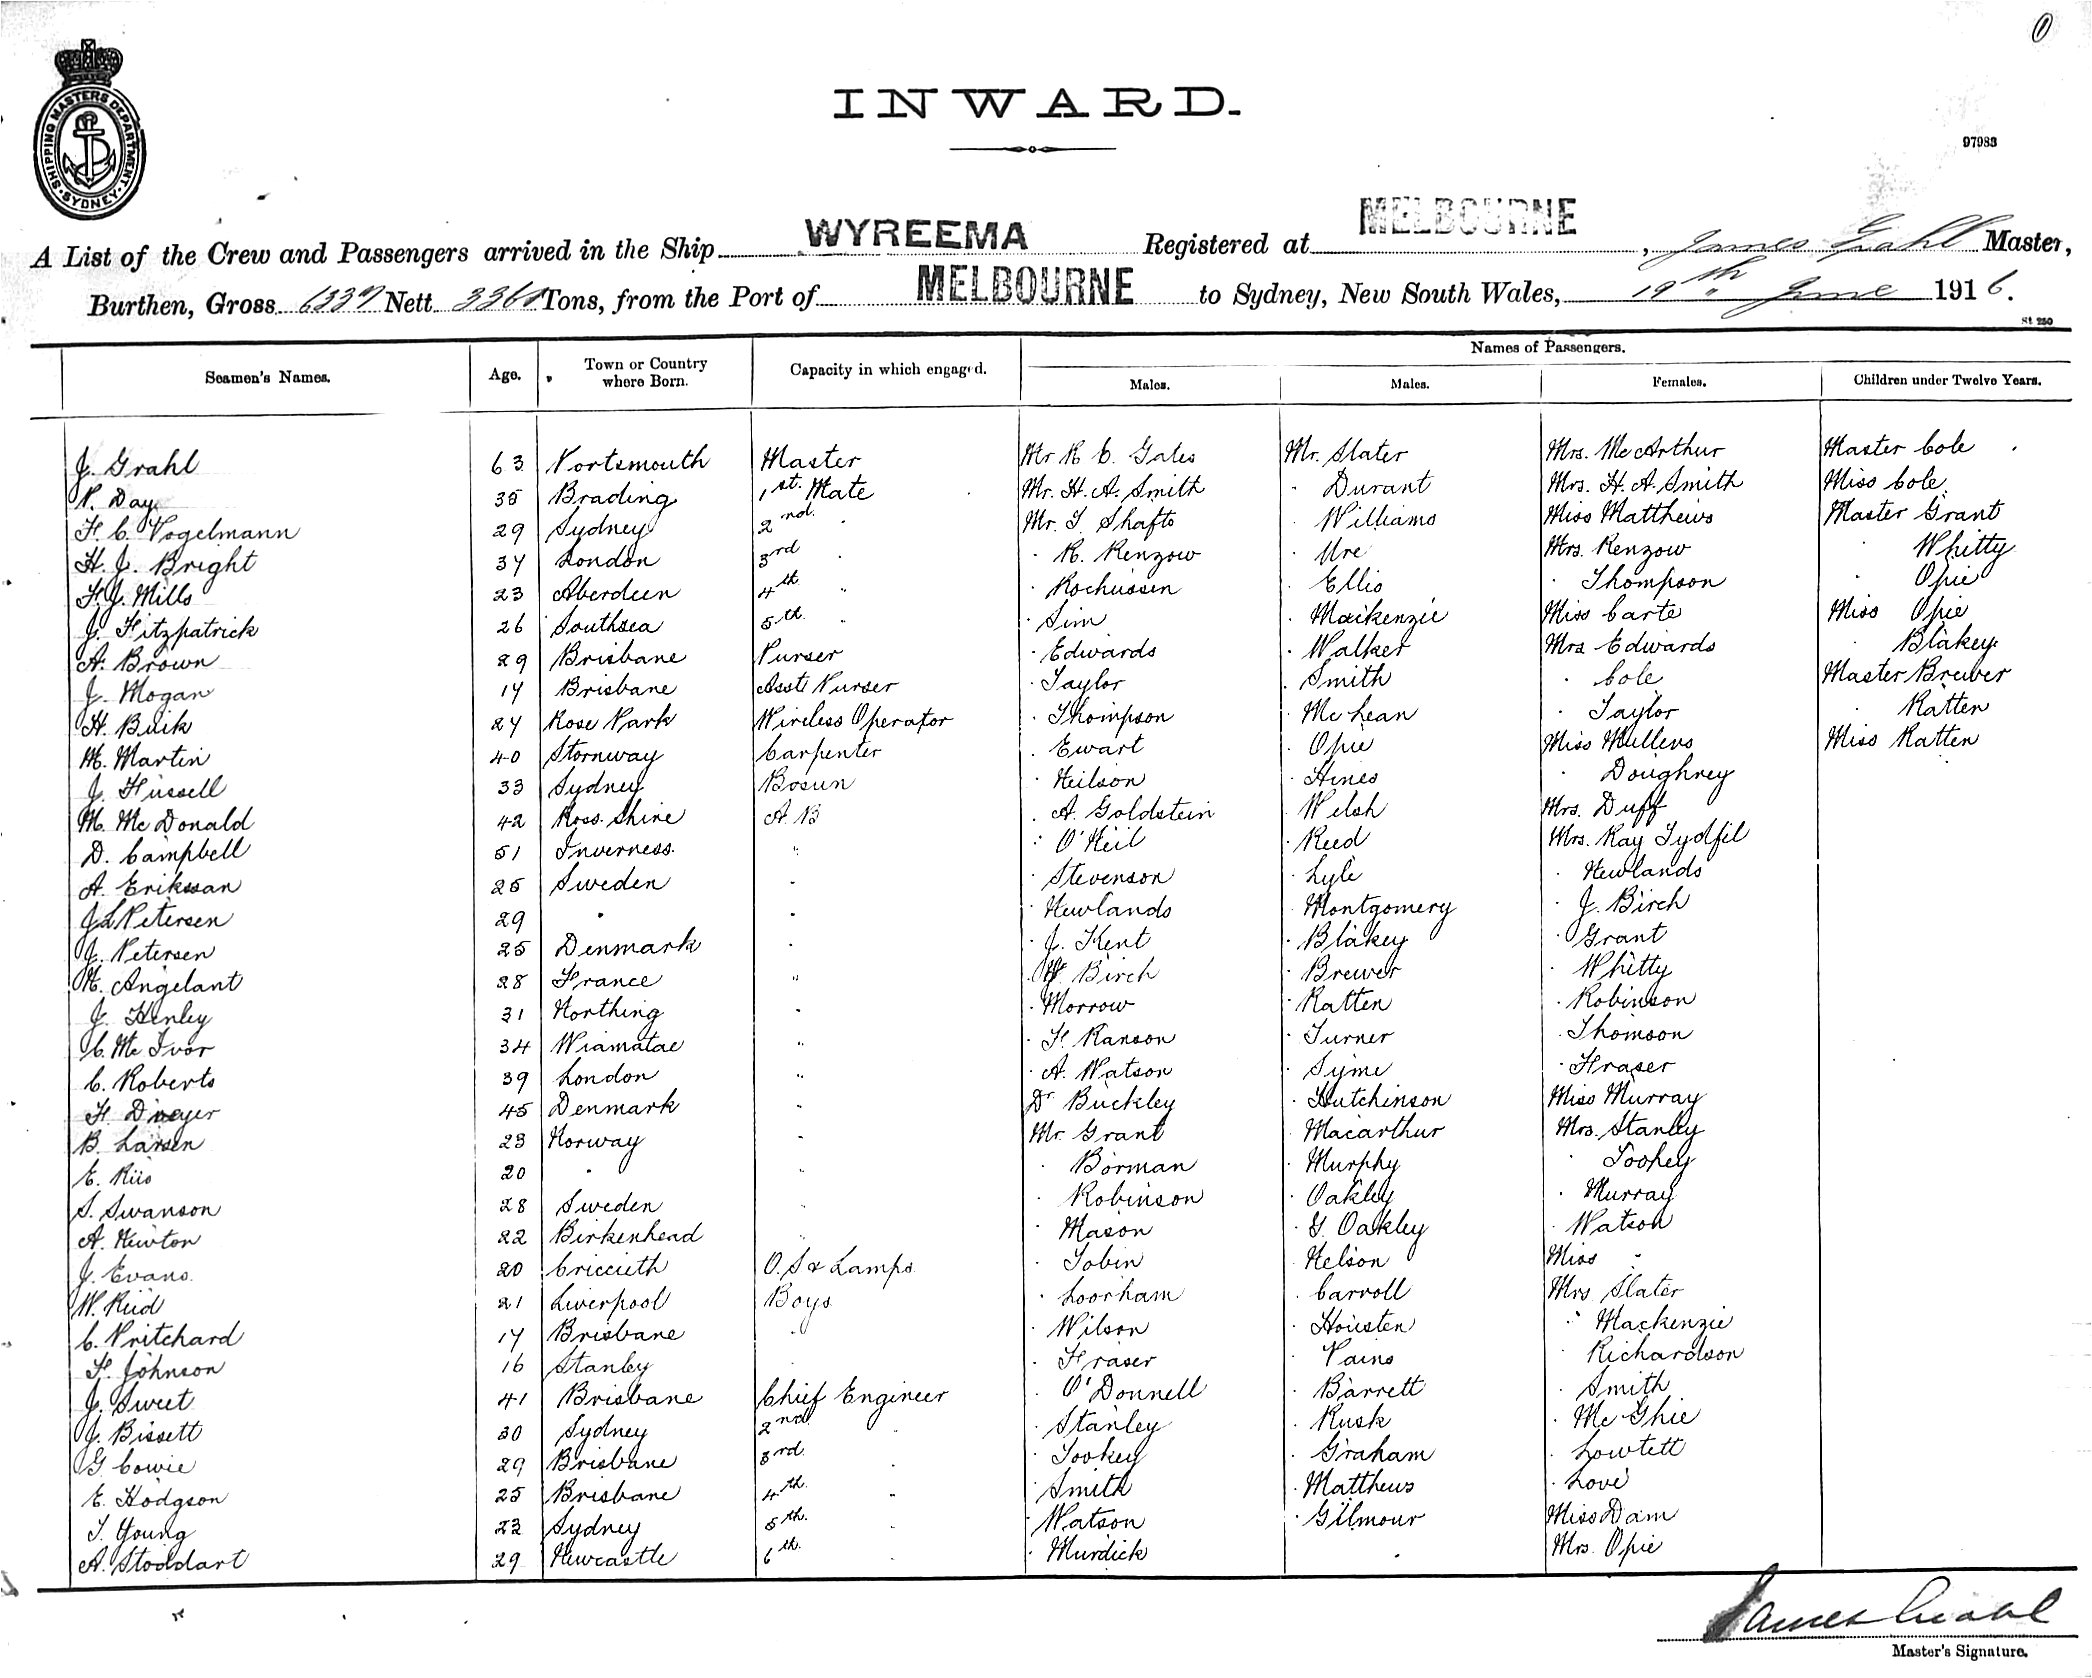 ①
SHIPPING MASTERS DEPARTMENT · SYDNEY ·
INWARD.
97983
A List of the Crew and Passengers arrived in the Ship WYREEMA Registered at MELBOURNE, James Grahl Master,
Burthen, Gross 6337 Nett Tons, from the Port of MELBOURNE to Sydney, New South Wales, 19th June 1916.
St 250
Seamen's Names. Age. Town or Country where Born. Capacity in which engaged. Names of Passengers.
Males. Males. Females. Children under Twelve Years.
J. Grahl 63 Portsmouth Master Mr R C. Gates Mr. Slater Mrs. McArthur Master Cole
P. Day 35 Brading 1st. Mate Mr. H. A. Smith " Durant Mrs. H. A. Smith Miss Cole
F. C. Vogelmann 29 Sydney 2nd. " Mr. T. Shafto " Williams Miss Matthews Master Grant
H. J. Bright 37 London 3rd " " R. Renzow " Ure Mrs. Renzow " Whitty
F. J. Mills 23 Aberdeen 4th " " Rochussen " Ellis " Thompson " Opie
J. Fitzpatrick 26 Southsea 5th " " Sim " Mackenzie Miss Carte Miss Opie
A. Brown 29 Brisbane Purser " Edwards " Walker Mrs Edwards " Blakey
J. Mogan 17 Brisbane Asst. Purser " Taylor " Smith " Cole Master Brewer
H. Buik 27 Rose Park Wireless Operator " Thompson " McLean " Taylor " Ratten
M. Martin 40 Stornway Carpenter " Ewart " Opie Miss Mullens Miss Ratten
J. Fussell 33 Sydney Bosun " Neilson " Hines " Doughney
M. McDonald 42 Ross. Shire A. B " A. Goldstein " Welsh Mrs. Duff
D. Campbell 51 Inverness " " O'Neil " Reed Mrs. Ray Tydfil
A. Eriksson 25 Sweden " " Stevenson " Lyle " Newlands
J L Petersen 29 " " " Newlands " Montgomery " J. Birch
J. Petersen 25 Denmark " " J. Kent " Blakey " Grant
M. Angelant 28 France " " W. Birch " Brewer " Whitty
J. Henley 31 Worthing " " Morrow " Ratten " Robinson
C. McIvor 34 Wiamatae " " F. Ranson " Turner " Thomson
C. Roberts 39 London " " A. Watson " Syme " Fraser
F. Dreyer 45 Denmark " Dr Buckley " Hutchinson Miss Murray
B. Larsen 23 Norway " Mr. Grant " Macarthur Mrs. Stanley
E. Riis 20 " " " Borman " Murphy " Toohey
S. Swanson 28 Sweden " " Robinson " Oakley " Murray
A. Newton 22 Birkenhead " " Mason " G. Oakley " Watson
J. Evans 20 Criccieth O. S & Lamps " Tobin " Nelson Miss "
W. Reid 21 Liverpool Boys " Loorham " Carroll Mrs Slater
C. Pritchard 17 Brisbane " " Wilson " Housten " Mackenzie
F. Johnson 16 Stanley " " Fraser " Pains " Richardson
J. Sweet 41 Brisbane Chief Engineer " O'Donnell " Barrett " Smith
J. Bissett 30 Sydney 2nd. " " Stanley " Rusk " McGhie
G. Cowie 29 Brisbane 3rd. " " Tookey " Graham " Lowtett
E. Hodgson 25 Brisbane 4th. " " Smith " Matthews " Love
T. Young 22 Sydney 5th. " " Watson " Gilmour Miss Dam
A. Stoddart 29 Newcastle 6th. " " Murdick Mrs. Opie
James Grahl
Master's Signature.